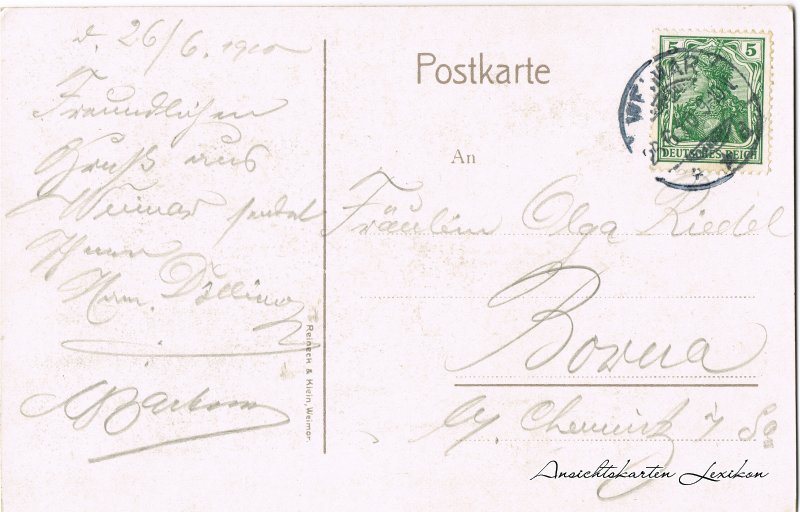 d. 26/6. 1910
Freundlichen
Gruß aus
Weimar sendet
Ihnen
Ham. Dölling
Postkarte
5 5
WEIMAR
DEUTSCHES REICH
An
Fräulein Olga Riedel
Borna
b/ Chemnitz i/ Sa
Reineck & Klein, Weimar.
Ansichtskarten Lexikon